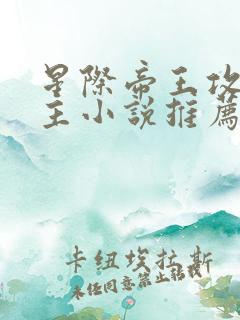 星際帝王攻
主小說推薦
卡纽埃拉斯
未经同意禁止转载